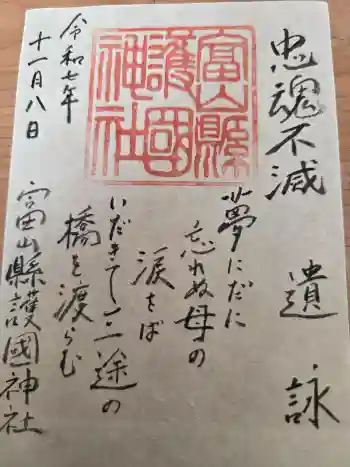 忠魂不滅
遺詠
夢にだに
忘れぬ母の
涙をば
いだきて三途の
橋を渡らむ
富山縣護國神社
富山縣護國神社
令和七年
十一月八日